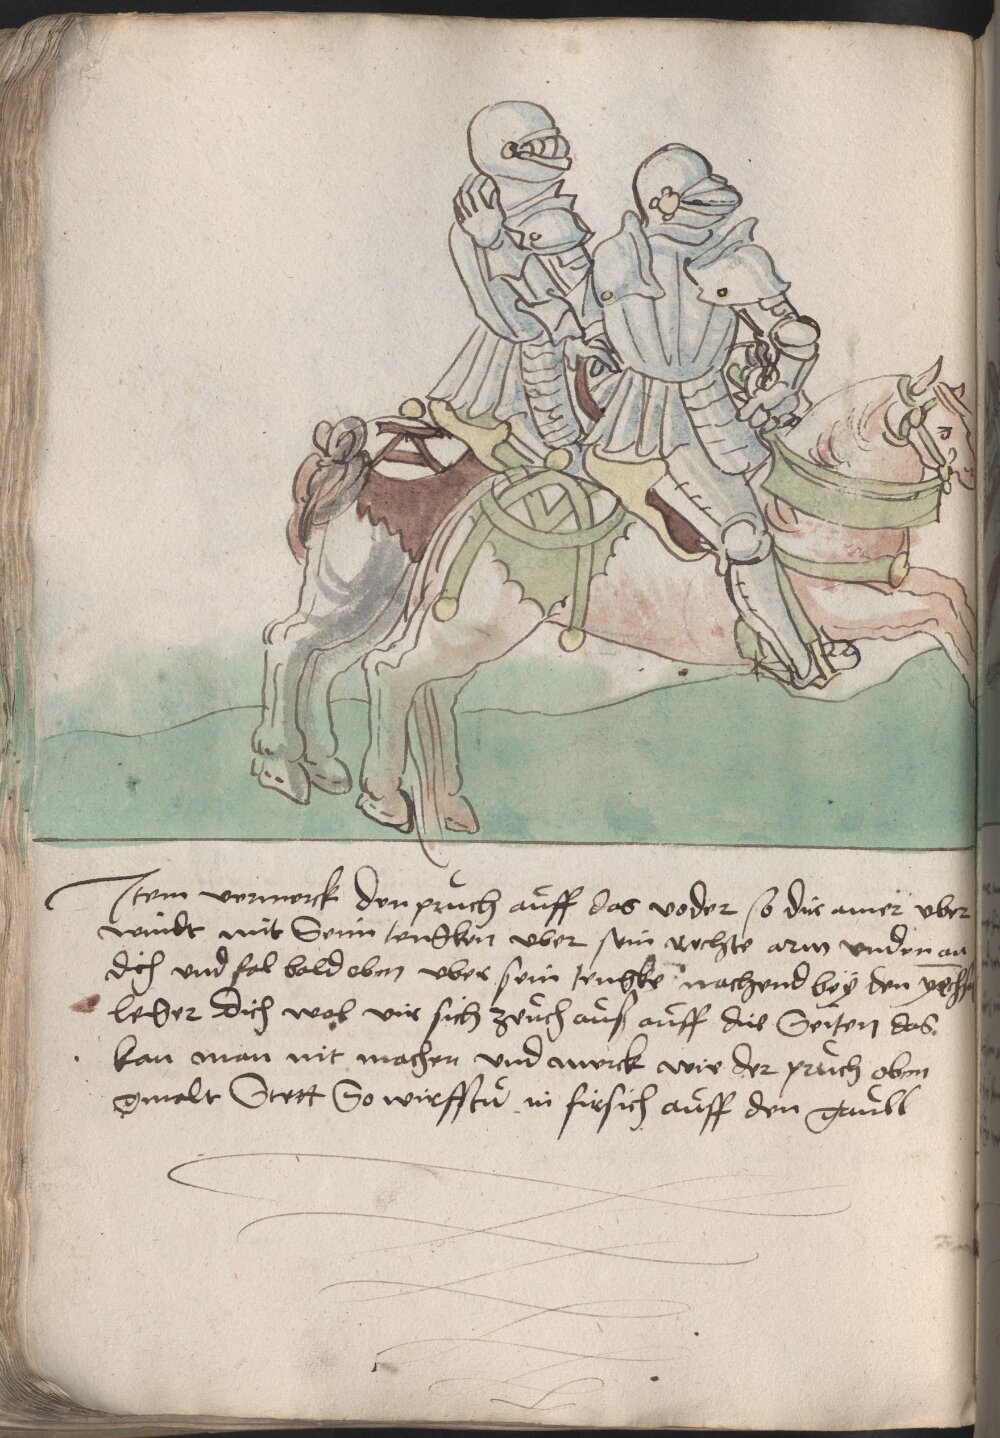 Item vermerck den pruch auff das voder so dir ainer uber
windt mit Seim lenckhen uber sein rechte arm unden an
dich und fal bald oben uber sein lenghke nachend bey den
leher dich wol vir sich zeuch aus auff die Seiten das
kan man nit machen und merck wie der pruch oben
gmalt Stett So wirfstu in fürsich auff den gaull